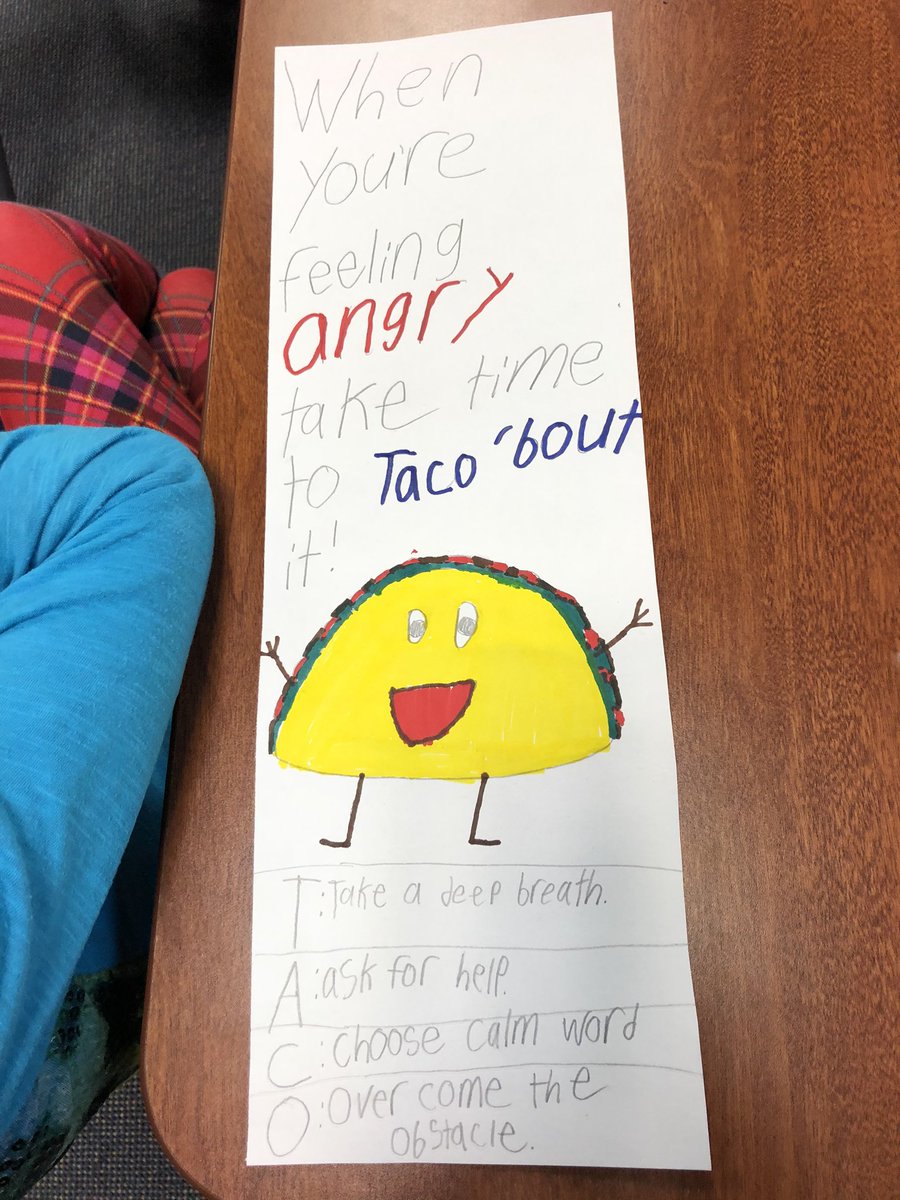 When
you're
feeling
angry
take time
to Taco 'bout
it!
T: Take a deep breath.
A: ask for help.
C: Choose calm word
O: Over come the
obstacle.